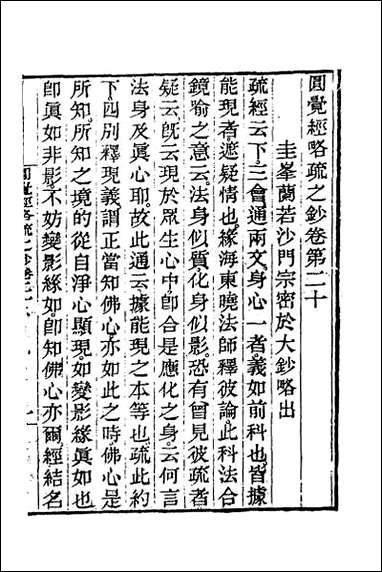 圓覺經略疏之鈔卷第二十
圭峯蘭若沙門宗密於大鈔略出
疏經云下三會通兩文身心一者義如前科也皆據
能現者遮疑情也緣海東曉法師釋彼論此科法合
鏡喻之意云法身似質化身似影恐有曾見彼疏者
疑云旣云現於眾生心中卽合是應化之身云何言
法身及眞心耶故此通云據能現之本等也疏此約
下四別釋現義謂正當知佛心亦如此之時佛心是
所知所知之境的從自淨心顯現如變影緣眞如也
卽眞如非影不妨變影緣如卽知佛心亦爾經結名